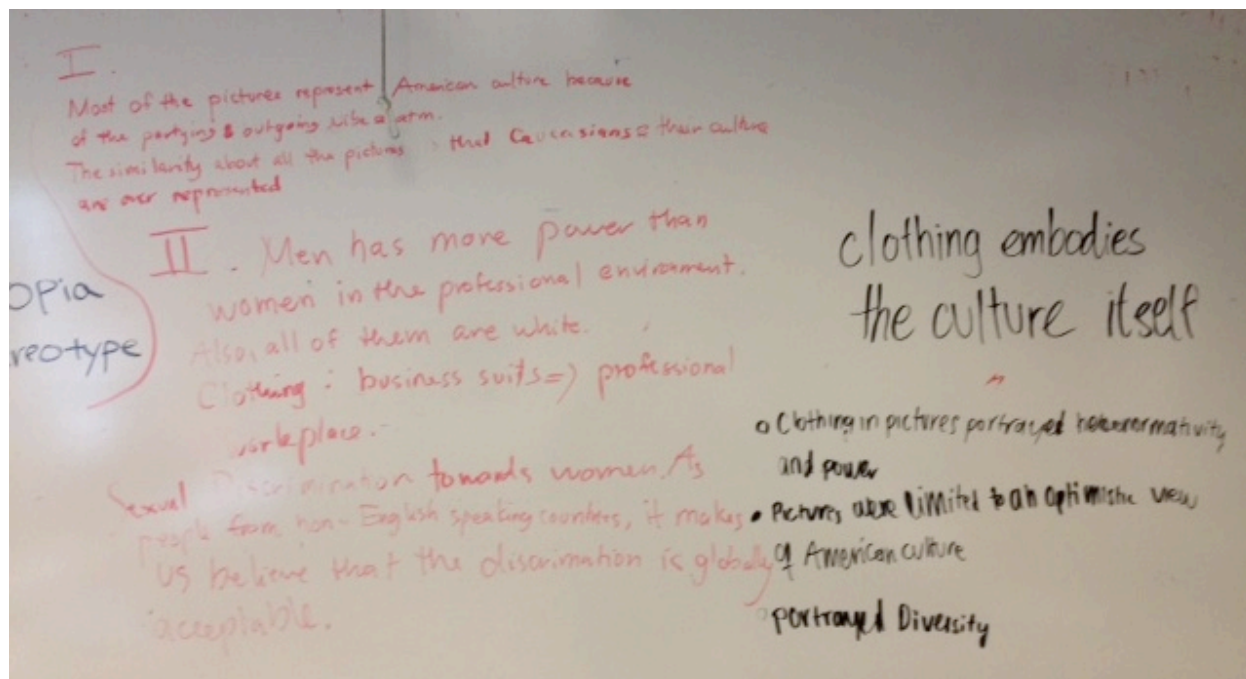 I.
Most of the pictures represent American culture because
of the partying & outgoing
The similarity about all the pictures is that Caucasians & their culture
are over represented
II. Men has more power than
women in the professional environment.
Also, all of them are white.
Clothing : business suits => professional
workplace.-
Sexual Discrimination towards women. As
people from non-English speaking countries, it makes
us believe that the discrimination is globally
acceptable.
opia
reotype
clothing embodies
the culture itself
o Clothing in pictures portrayed heteronormativity
and power
• Pictures were limited to an optimistic view
of American culture
portrayed Diversity